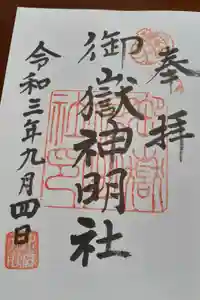 奉拝
御嶽神明社
令和三年九月四日